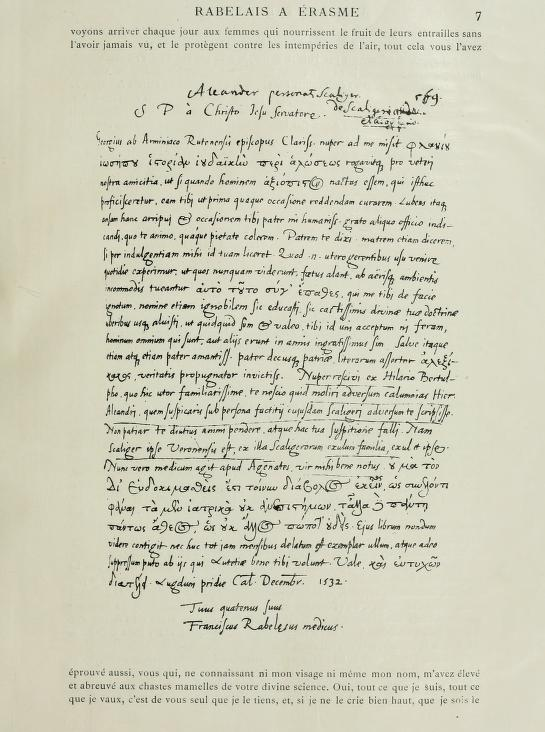 RABELAIS A ÉRASME
7
voyons arriver chaque jour aux femmes qui nourrissent le fruit de leurs entrailles sans
l'avoir jamais vu, et le protègent contre les intempéries de l'air, tout cela vous l'avez
Aleander personat Scaliger. 569.
S P à Christo Iesu Servatore.
Georgius ab Arminiaco Rutenensis episcopus Clariss. nuper ad me misit φλαυίου
ἱστορίαν ἰουδαϊκὴν περὶ ἁλώσεως rogavitq, pro veteri
nostra amicitia, ut si quando hominem ἀξιόπιστον nactus essem, qui isthuc
proficisceretur, eam tibi ut prima quaque occasione reddendam curarem. Lubens itaq
ansam hanc arripui & occasionem tibi pater mi humaniss. grato aliquo officio indi-
candi, quo te animo, quaque pietate colerem. Patrem te dixi, matrem etiam dicerem,
si per indulgentiam mihi id tuam liceret. Quod .n. utero gerentibus usu venire
quotidie experimur, ut quos nunquam viderunt, fœtus alant, ab aërisq, ambientis
incommodis tueantur αὐτὸ τοῦτο σύγ' ἔπαθες, qui me tibi de facie
ignotum, nomine etiam ignobilem sic educasti, sic castissimis divinæ tuæ doctrinæ
uberibus usq, aluisti, ut quidquid sum & valeo, tibi id uni acceptum ni feram,
hominum omnium qui sunt, aut aliis erunt in annis ingratissimus sim. Salve itaque
etiam atq, etiam pater amantiss. pater decusq, patriæ, literarum assertor ἀλεξί-
κακος, veritatis propugnator invictiss. Nuper rescivi ex Hilario Bertul-
pho, quo hic utor familiarissime, te nescio quid moliri adversum calumnias Hier.
Aleandri, quem suspicaris sub persona factitii cujusdam Scaligeri adversum te scripsisse.
Non patiar te diutius animi pendere, atque hac tua suspitione falli. Nam
Scaliger ipse Veronensis est, ex illa Scaligerorum exulum familia, exul et ipse.
Nunc vero medicum agit apud Agenates, vir mihi bene notus οὐ μὰ τὸν
Δί' εὐδοκιμασθεὶς ἔστι τοίνυν διάβολος ἐκεῖνος, ὡς συνελόντι
φάναι τὰ μὲν ἰατρικὰ οὐκ ἀνεπιστήμων, τἄλλα δὲ πάντη
πάντως ἄθεος, ὡς οὐκ ἄλλος πώποτ' οὐδείς. Ejus librum nondum
videre contigit, nec huc tot jam mensibus delatum est exemplar ullum, atque adeo
suppressum puto ab iis qui Lutetiæ bene tibi volunt. Vale, καὶ εὐτυχῶν
διατέλει. Lugduni pridie Cal. Decembr. 1532.
Tuus quatenus suus
Franciscus Rabelæsus medicus.
éprouvé aussi, vous qui, ne connaissant ni mon visage ni même mon nom, m'avez élevé
et abreuvé aux chastes mamelles de votre divine science. Oui, tout ce que je suis, tout ce
que je vaux, c'est de vous seul que je le tiens, et, si je ne le crie bien haut, que je sois le